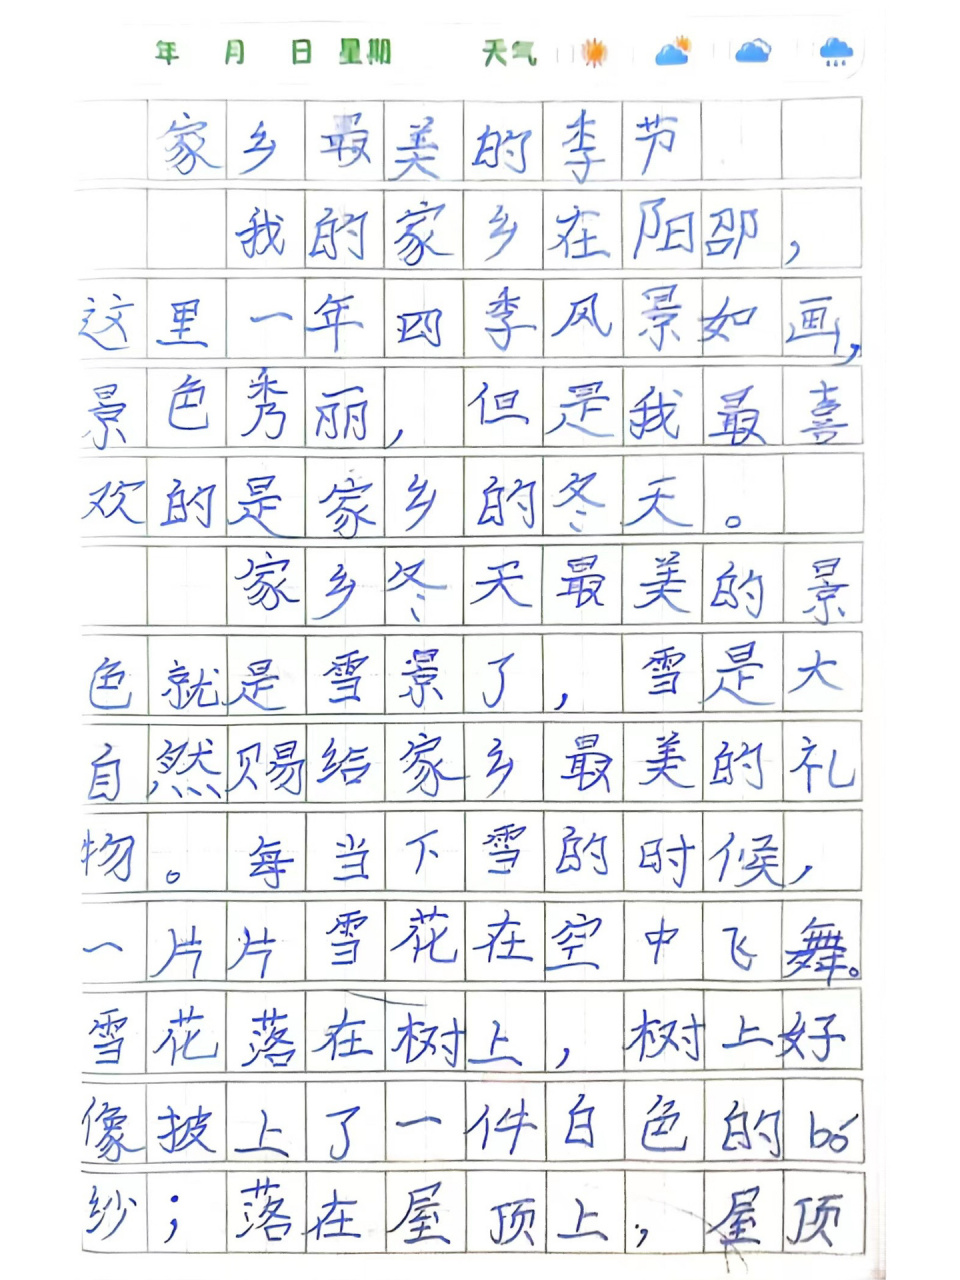 年 月 日 星期 天气
家乡最美的季节
我的家乡在阳邵，
这里一年四季风景如画，
景色秀丽，但是我最喜
欢的是家乡的冬天。
家乡冬天最美的景
色就是雪景了，雪是大
自然赐给家乡最美的礼
物。每当下雪的时候，
一片片雪花在空中飞舞。
雪花落在树上，树上好
像披上了一件白色的bó
纱；落在屋顶上，屋顶